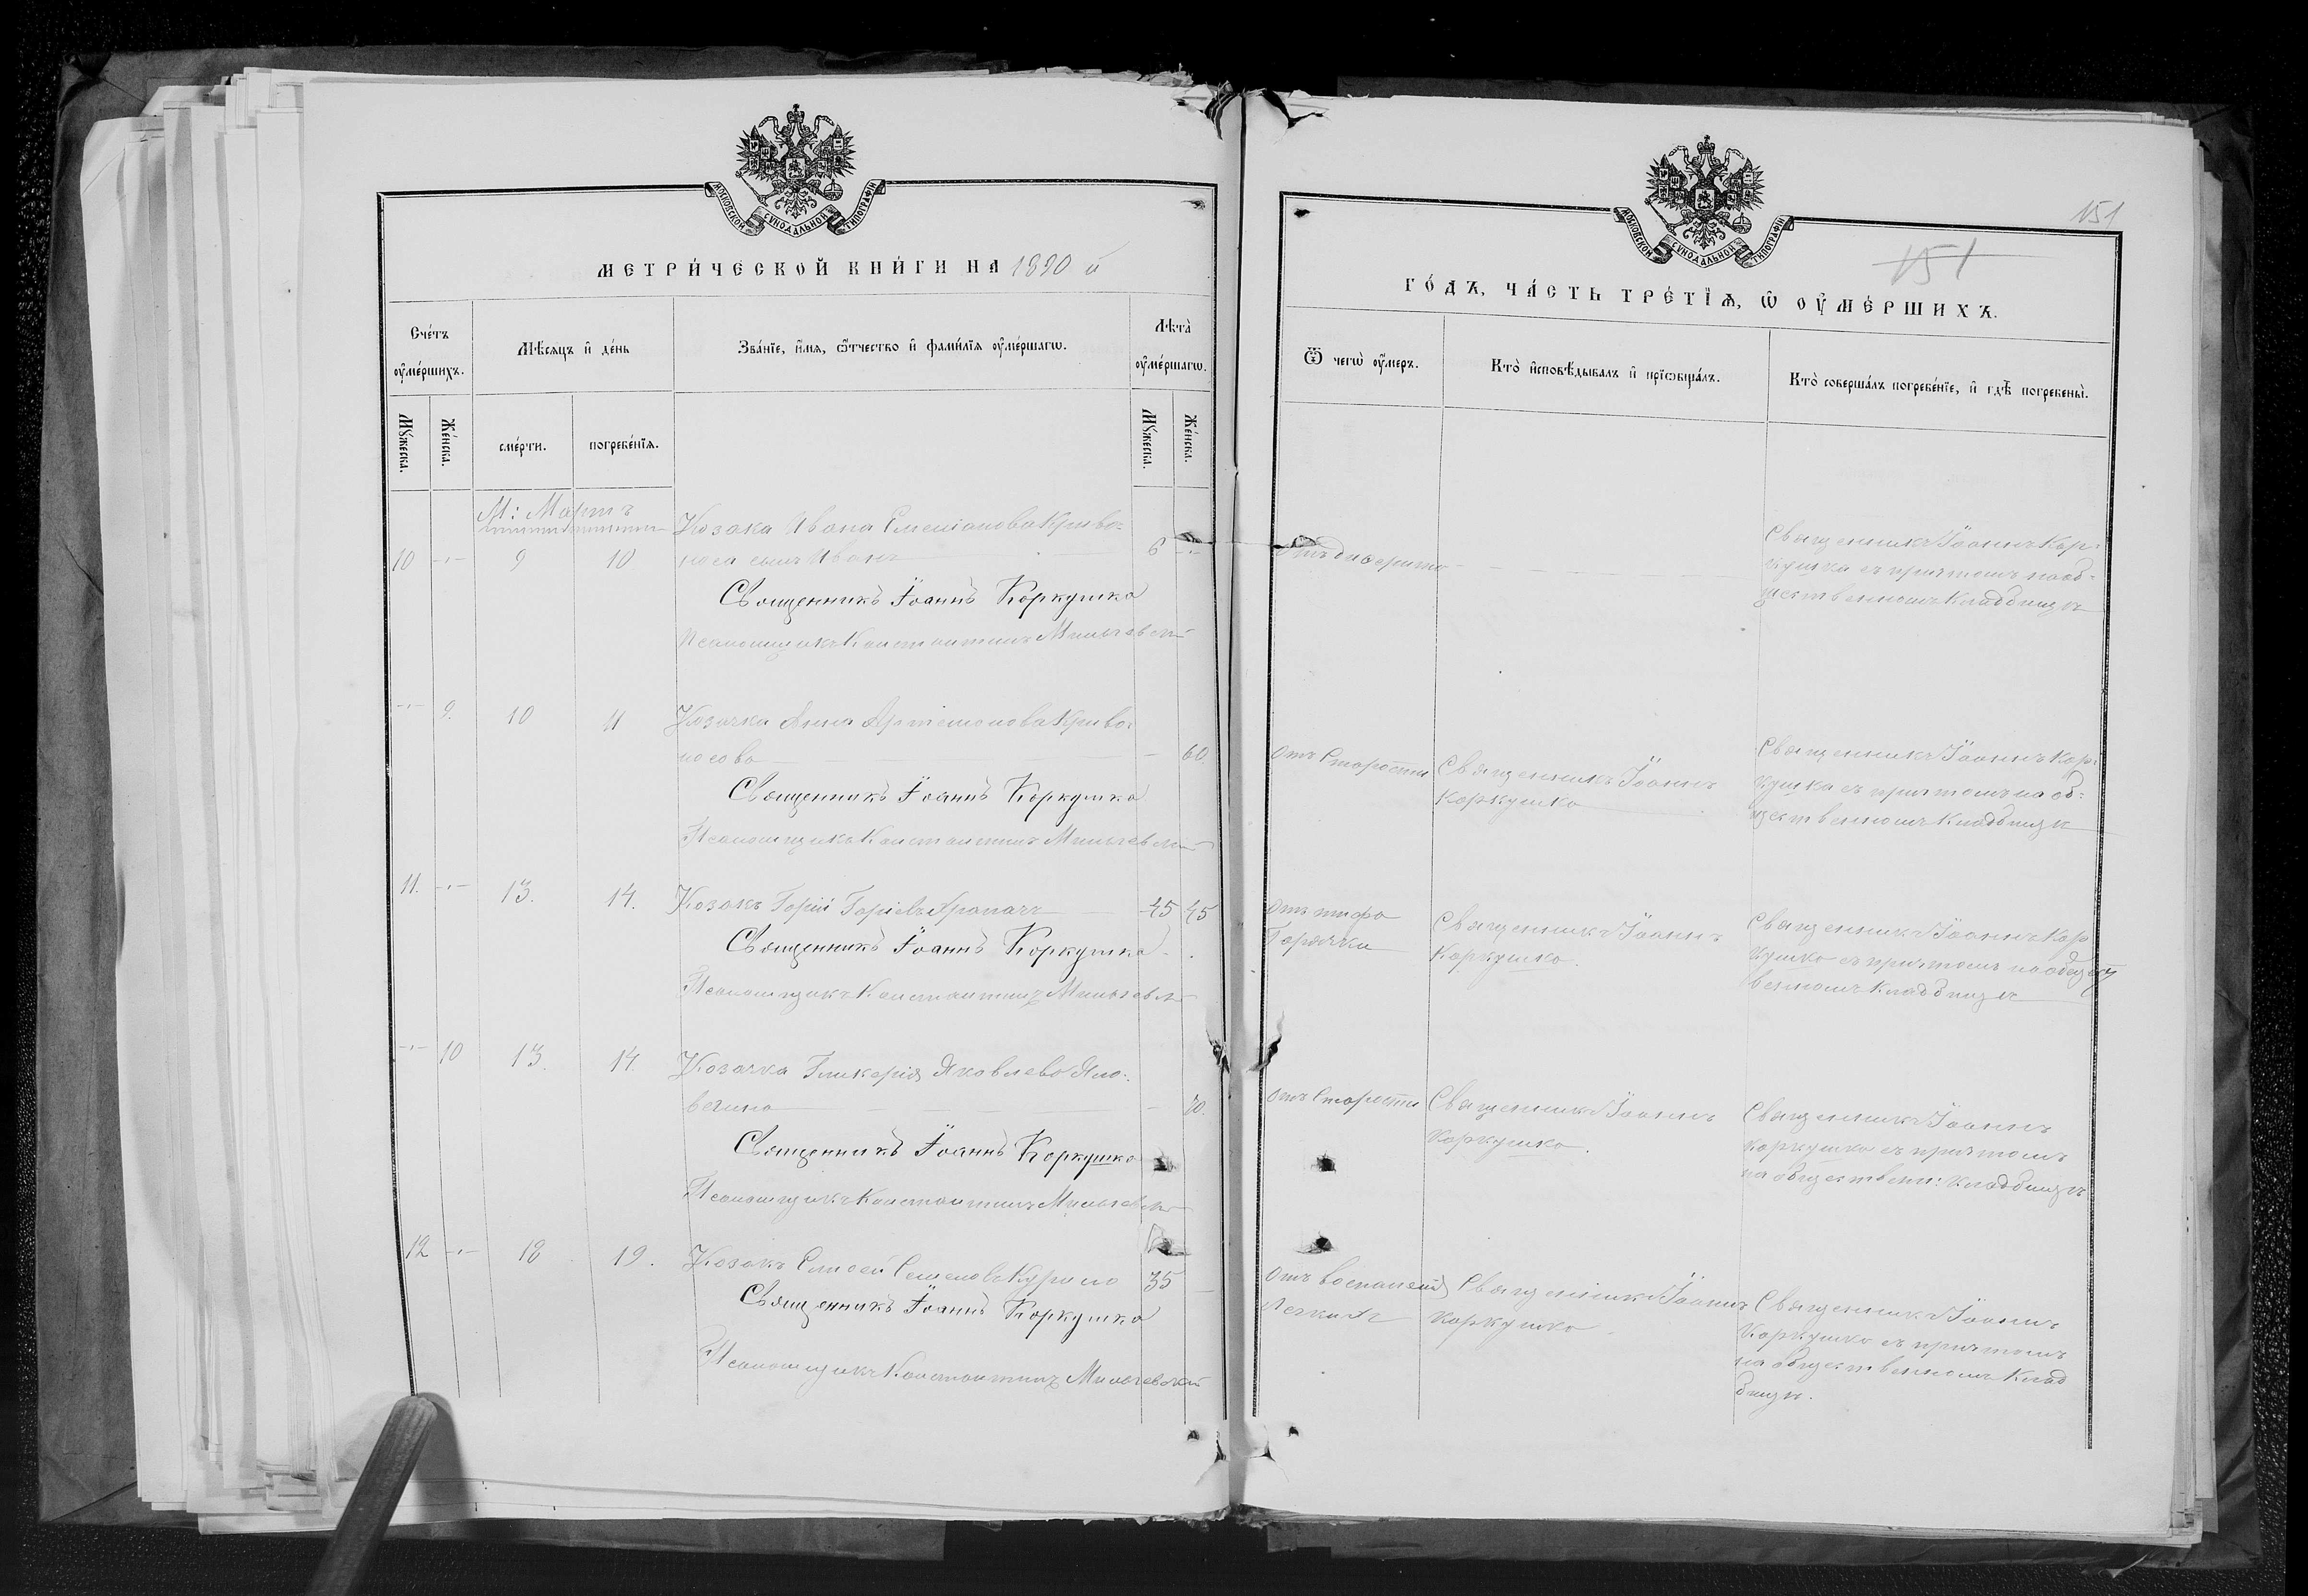 МОСКОВСКОЙ СѴНОДАЛЬНОЙ ТИПОГРАФІИ
МЕТРИ́ЧЕСКОЙ КНИ́ГИ НА 1890 й
Сче́тъ ᲂу҆ме́ршихъ.
Мѣ́сяцъ и҆ де́нь
Зва́нїе, и҆́мя, ѻ҆́тчество и҆ фами́лїя ᲂу҆ме́ршагѡ.
Лѣ́та ᲂу҆ме́ршагѡ.
Мꙋ́жеска.
Же́нска.
сме́рти.
погребе́нїѧ.
Мꙋ́жеска.
Же́нска.
М: Мартъ
Козака Ивана Емелianова Криво-
10 -"- 9 10 носа сынъ Иванъ 6 -"-
Священникъ Іоаннъ Коркушко
Псаломщикъ Константинъ
-"- 9. 10 11 Козачка Анна Артемонова Криво-
носова — 60
Священникъ Іоаннъ Коркушко
Псаломщикъ Константинъ
11. -"- 13. 14. Козакъ 45 45
Священникъ Іоаннъ Коркушко
Псаломщикъ Константинъ
-"- 10 13. 14. Козачка Гликерія Яковлева
— 70.
Священникъ Іоаннъ Коркушко
Псаломщикъ Константинъ
12 -"- 18 19. Козакъ Семеновъ 35 —
Священникъ Іоаннъ Коркушко
Псаломщикъ Константинъ
151
151
МОСКОВСКОЙ СѴНОДАЛЬНОЙ ТИПОГРАФІИ
ГО́ДЪ, ЧА́СТЬ ТРЕ́ТЇѦ, Ѡ҆ ОУ҆МЕ́РШИХЪ.
Ѿ чегѡ̀ ᲂу҆́меръ.
Кто̀ и҆сповѣ́дывалъ и҆ прїѡбща́лъ.
Кто̀ соверша́лъ погребе́нїе, и҆ гдѣ̀ погребены̀.
Отъ дифтерита
Священникъ Іоаннъ Кор-
кушко съ причтомъ на об-
щественномъ кладбищѣ
Отъ старости
Священникъ Іоаннъ
Коркушко
Священникъ Іоаннъ Кор-
кушко съ причтомъ на об-
щественномъ кладбищѣ
Отъ тифа
Горячки
Священникъ Іоаннъ
Коркушко.
Священникъ Іоаннъ Кор
кушко съ причтомъ на общест
венномъ кладбищѣ
Отъ старости
Священникъ Іоаннъ
Коркушко.
Священникъ Іоаннъ
Коркушко съ причтомъ
на обществен: кладбищѣ
Отъ воспаленія
Легкихъ
Священникъ Іоаннъ
Коркушко.
Священникъ Іоаннъ
Коркушко съ причтомъ
на общественномъ клад
бищѣ.